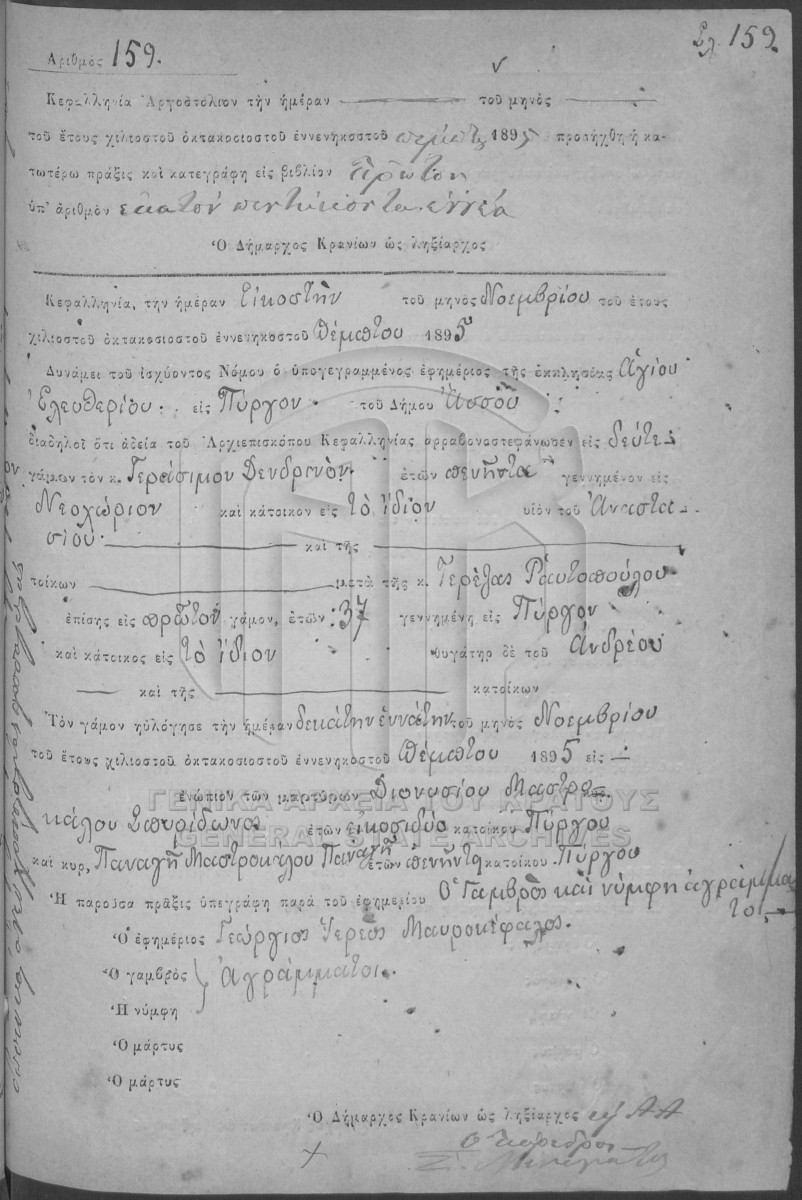 Σλ. 159
Ἀριθμὸς 159.
Κεφαλληνία Ἀργοστόλιον τὴν ἡμέραν τοῦ μηνὸς
τοῦ ἔτους χιλιοστοῦ ὀκτακοσιοστοῦ ἐννενηκοστοῦ πέμπτου 1895 προσήχθη ἡ κα-
τωτέρω πρᾶξις καὶ κατεγράφη εἰς βιβλίον πρῶτον
ὑπ' ἀριθμὸν ἑκατὸν πεντήκοντα ἐννέα
Ὁ Δήμαρχος Κρανίων ὡς ληξίαρχος
Κεφαλληνία, τὴν ἡμέραν Εἰκοστὴν τοῦ μηνὸς Νοεμβρίου τοῦ ἔτους
χιλιοστοῦ ὀκτακοσιοστοῦ ἐννενηκοστοῦ Πέμπτου 1895
Δυνάμει τοῦ ἰσχύοντος Νόμου ὁ ὑπογεγραμμένος ἐφημέριος τῆς ἐκκλησίας Ἁγίου
Ἐλευθερίου εἰς Πύργον τοῦ Δήμου Ἀσσοῦ
διαδηλοῖ ὅτι ἀδείᾳ τοῦ Ἀρχιεπισκόπου Κεφαλληνίας ἀρραβωνοστεφάνωσεν εἰς δεύτε-
γάμον τὸν κ. Γεράσιμον Δενδρινὸν ἐτῶν πενῆντα γεννημένον εἰς
Νεοχώριον καὶ κάτοικον εἰς τὸ ἴδιον υἱὸν τοῦ Ἀναστα-
σίου καὶ τῆς
τοίκων μετὰ τῆς κ. Τερέζας Ραυτοπούλου
ἐπίσης εἰς πρῶτον γάμον, ἐτῶν 37 γεννημένη εἰς Πύργον
καὶ κάτοικος εἰς τὸ ἴδιον θυγάτηρ δὲ τοῦ Ἀνδρέου
καὶ τῆς κατοίκων
Τὸν γάμον ηὐλόγησε τὴν ἡμέραν δεκάτην ἐννάτην τοῦ μηνὸς Νοεμβρίου
τοῦ ἔτους χιλιοστοῦ ὀκτακοσιοστοῦ ἐννενηκοστοῦ Πέμπτου 1895 εἰς
ἐνώπιον τῶν μαρτύρων Διονυσίου Μαστρο-
κάλου Σπυρίδωνος ἐτῶν εἰκοσιδύο κατοίκου Πύργου
καὶ κυρ, Παναγῆ Μαστροκάλου Παναγῆ ἐτῶν πενῆντα κατοίκου Πύργου
Ἡ παροῦσα πρᾶξις ὑπεγράφη παρὰ τοῦ ἐφημερίου Ὁ Γαμβρὸς καὶ νύμφη ἀγράμμα
τοι
Ὁ ἐφημέριος Γεώργιος Ἱερεὺς Μαυροκέφαλος.
Ὁ γαμβρὸς Ἀγράμματοι
Ἡ νύμφη
Ὁ μάρτυς
Ὁ μάρτυς
Ὁ Δήμαρχος Κρανίων ὡς ληξίαρχος
Ὁ πάρεδρος
ΓΕΝΙΚΑ ΑΡΧΕΙΑ ΤΟΥ ΚΡΑΤΟΥΣ
GENERAL STATE ARCHIVES